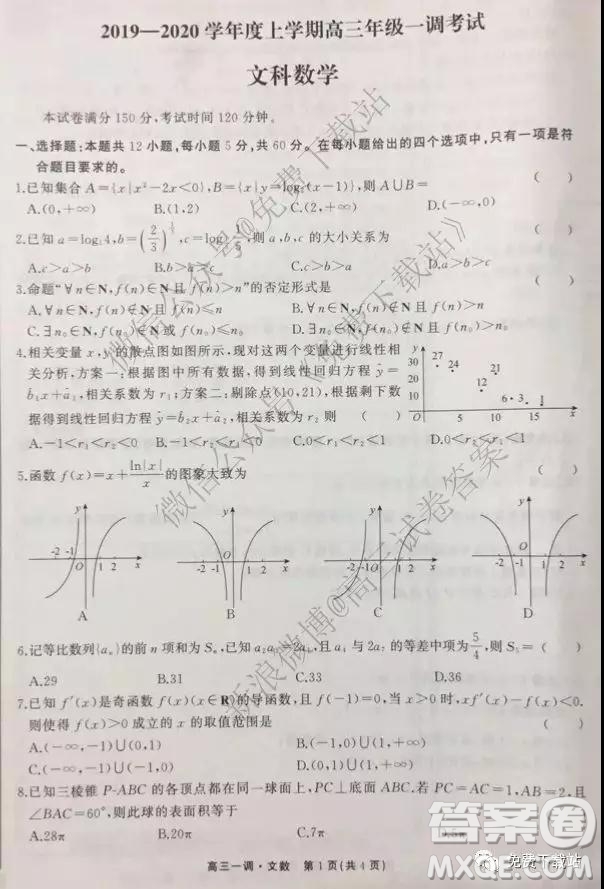 2019—2020学年度上学期高三年级一调考试
文科数学
本试卷满分150分,考试时间120分钟。
一、选择题:本题共12小题,每小题5分,共60分。在每小题给出的四个选项中,只有一项是符
合题目要求的。
1.已知集合A={x|x²-2x<0},B={x|y=log₂(x-1)},则A∪B= ( )
A.(0,+∞) B.(1,2) C.(2,+∞) D.(-∞,0)
2.已知 则a,b,c的大小关系为 ( )
A.c>a>b B.b>a>c C.c>b>a D.a>b>c
3.命题“∀n∈N,f(n)∈N且f(n)>n”的否定形式是 ( )
A.∀n∈N,f(n)∉N且f(n)≤n B.∀n∈N,f(n)∉N且f(n)>n
C.∃n₀∈N,f(n₀)∉N或f(n₀)≤n₀ D.∃n₀∈N,f(n₀)∉N且f(n₀)>n₀
4.相关变量x,y的散点图如图所示,现对这两个变量进行线性相
关分析,方案一:根据图中所有数据,得到线性回归方程ŷ=
b̂₁x+â₁,相关系数为r₁;方案二:剔除点(10,21),根据剩下数
据得到线性回归方程ŷ=b̂₂x+â₂,相关系数为r₂则 ( )
y
30
20
10
O 5 10 15 x
27 24 12 21 6 3 1
A.-1<r₁<r₂<0 B.-1<r₂<r₁<0 C.0<r₁<r₂<1 D.0<r₂<r₁<1
5.函数f(x)=x+ln|x|/x的图象大致为 ( )
y
-2 -1 O 1 2 x
A
y
-2 -1 O 1 2 x
B
y
-2 -1 O 1 2 x
C
y
-2 -1 O 1 2 x
D
6.记等比数列{aₙ}的前n项和为Sₙ,已知a₂a₃=2a₁,且a₄与2a₇的等差中项为5/4,则S₅=( )
A.29 B.31 C.33 D.36
7.已知f′(x)是奇函数f(x)(x∈R)的导函数,且f(-1)=0,当x>0时,xf′(x)-f(x)<0.
则使得f(x)>0成立的x的取值范围是 ( )
A.(-∞,-1)∪(0,1) B.(-1,0)∪(1,+∞)
C.(-∞,-1)∪(-1,0) D.(0,1)∪(1,+∞)
8.已知三棱锥P-ABC的各顶点都在同一球面上,PC⊥底面ABC.若PC=AC=1,AB=2,且
∠BAC=60°,则此球的表面积等于 ( )
A.28π B.20π C.7π
高三一调·文数 第1页(共4页)
微信公众号@免费下载站
微信公众号《免费下载站》
新浪微博@高三试卷答案
答案圈
MXQE.COM
免费下载站